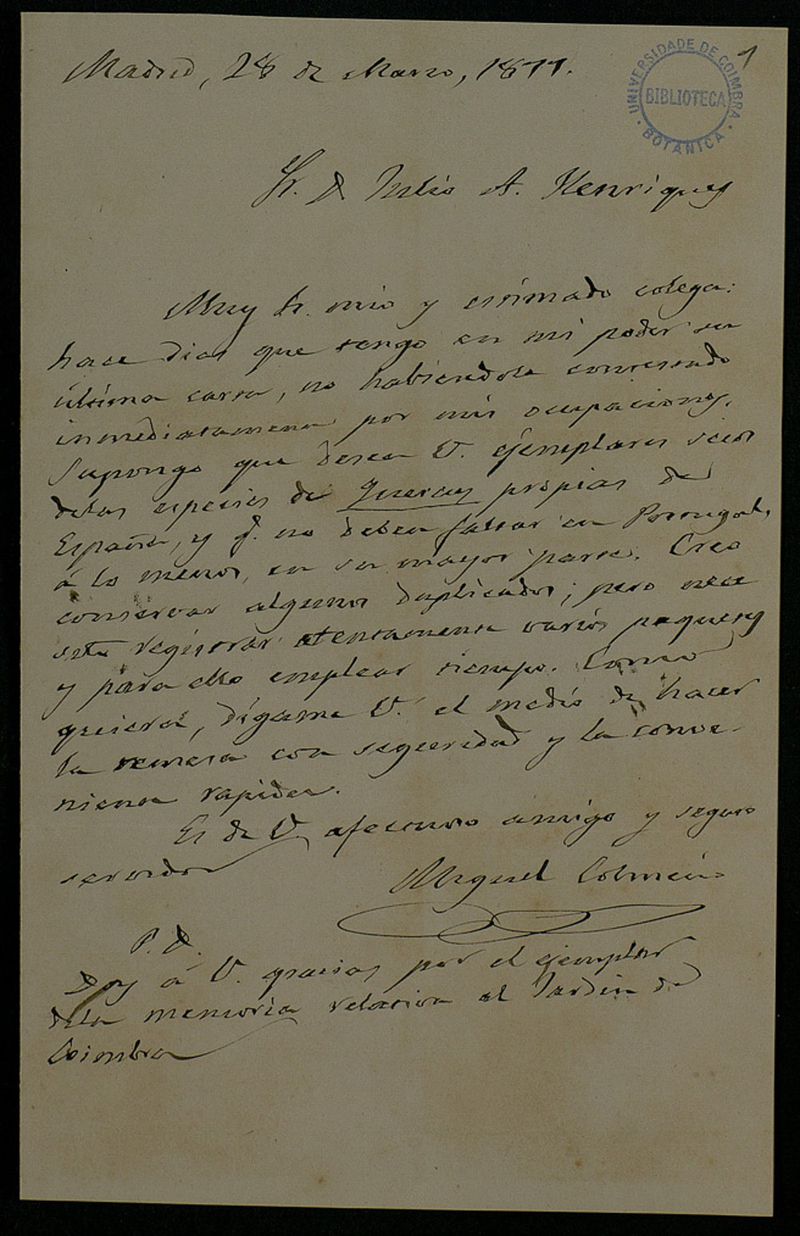 1
UNIVERSIDADE DE COIMBRA
BIBLIOTECA
BOTANICA
Madrid, 28 de Marzo, 1877.
Sr. D Julio A. Henriques
Muy Sr. mio y estimado colega:
hace dias que tengo en mi poder su
última carta, no habiendola contestado
inmediatamente por mis ocupaciones.
Supongo que desea V. ejemplares secos
delas especies de Quercus propias de
España, y q. no deben faltar en Portugal,
á lo menos, en su mayor parte. Creo
conservar algunos duplicados; pero nece
sito registrar atentamente varios paquetes
y para ello emplear tiempo. Como
quiera, dígame V. el medio de hacer
la remesa con seguridad y la conve-
niente rapidez.
Es de V. afectuoso amigo y seguro
servidor
Miguel Colmeiro
P. D.
Doy á V. gracias por el ejemplar
dela memoria relativa al Jardin de
Coimbra